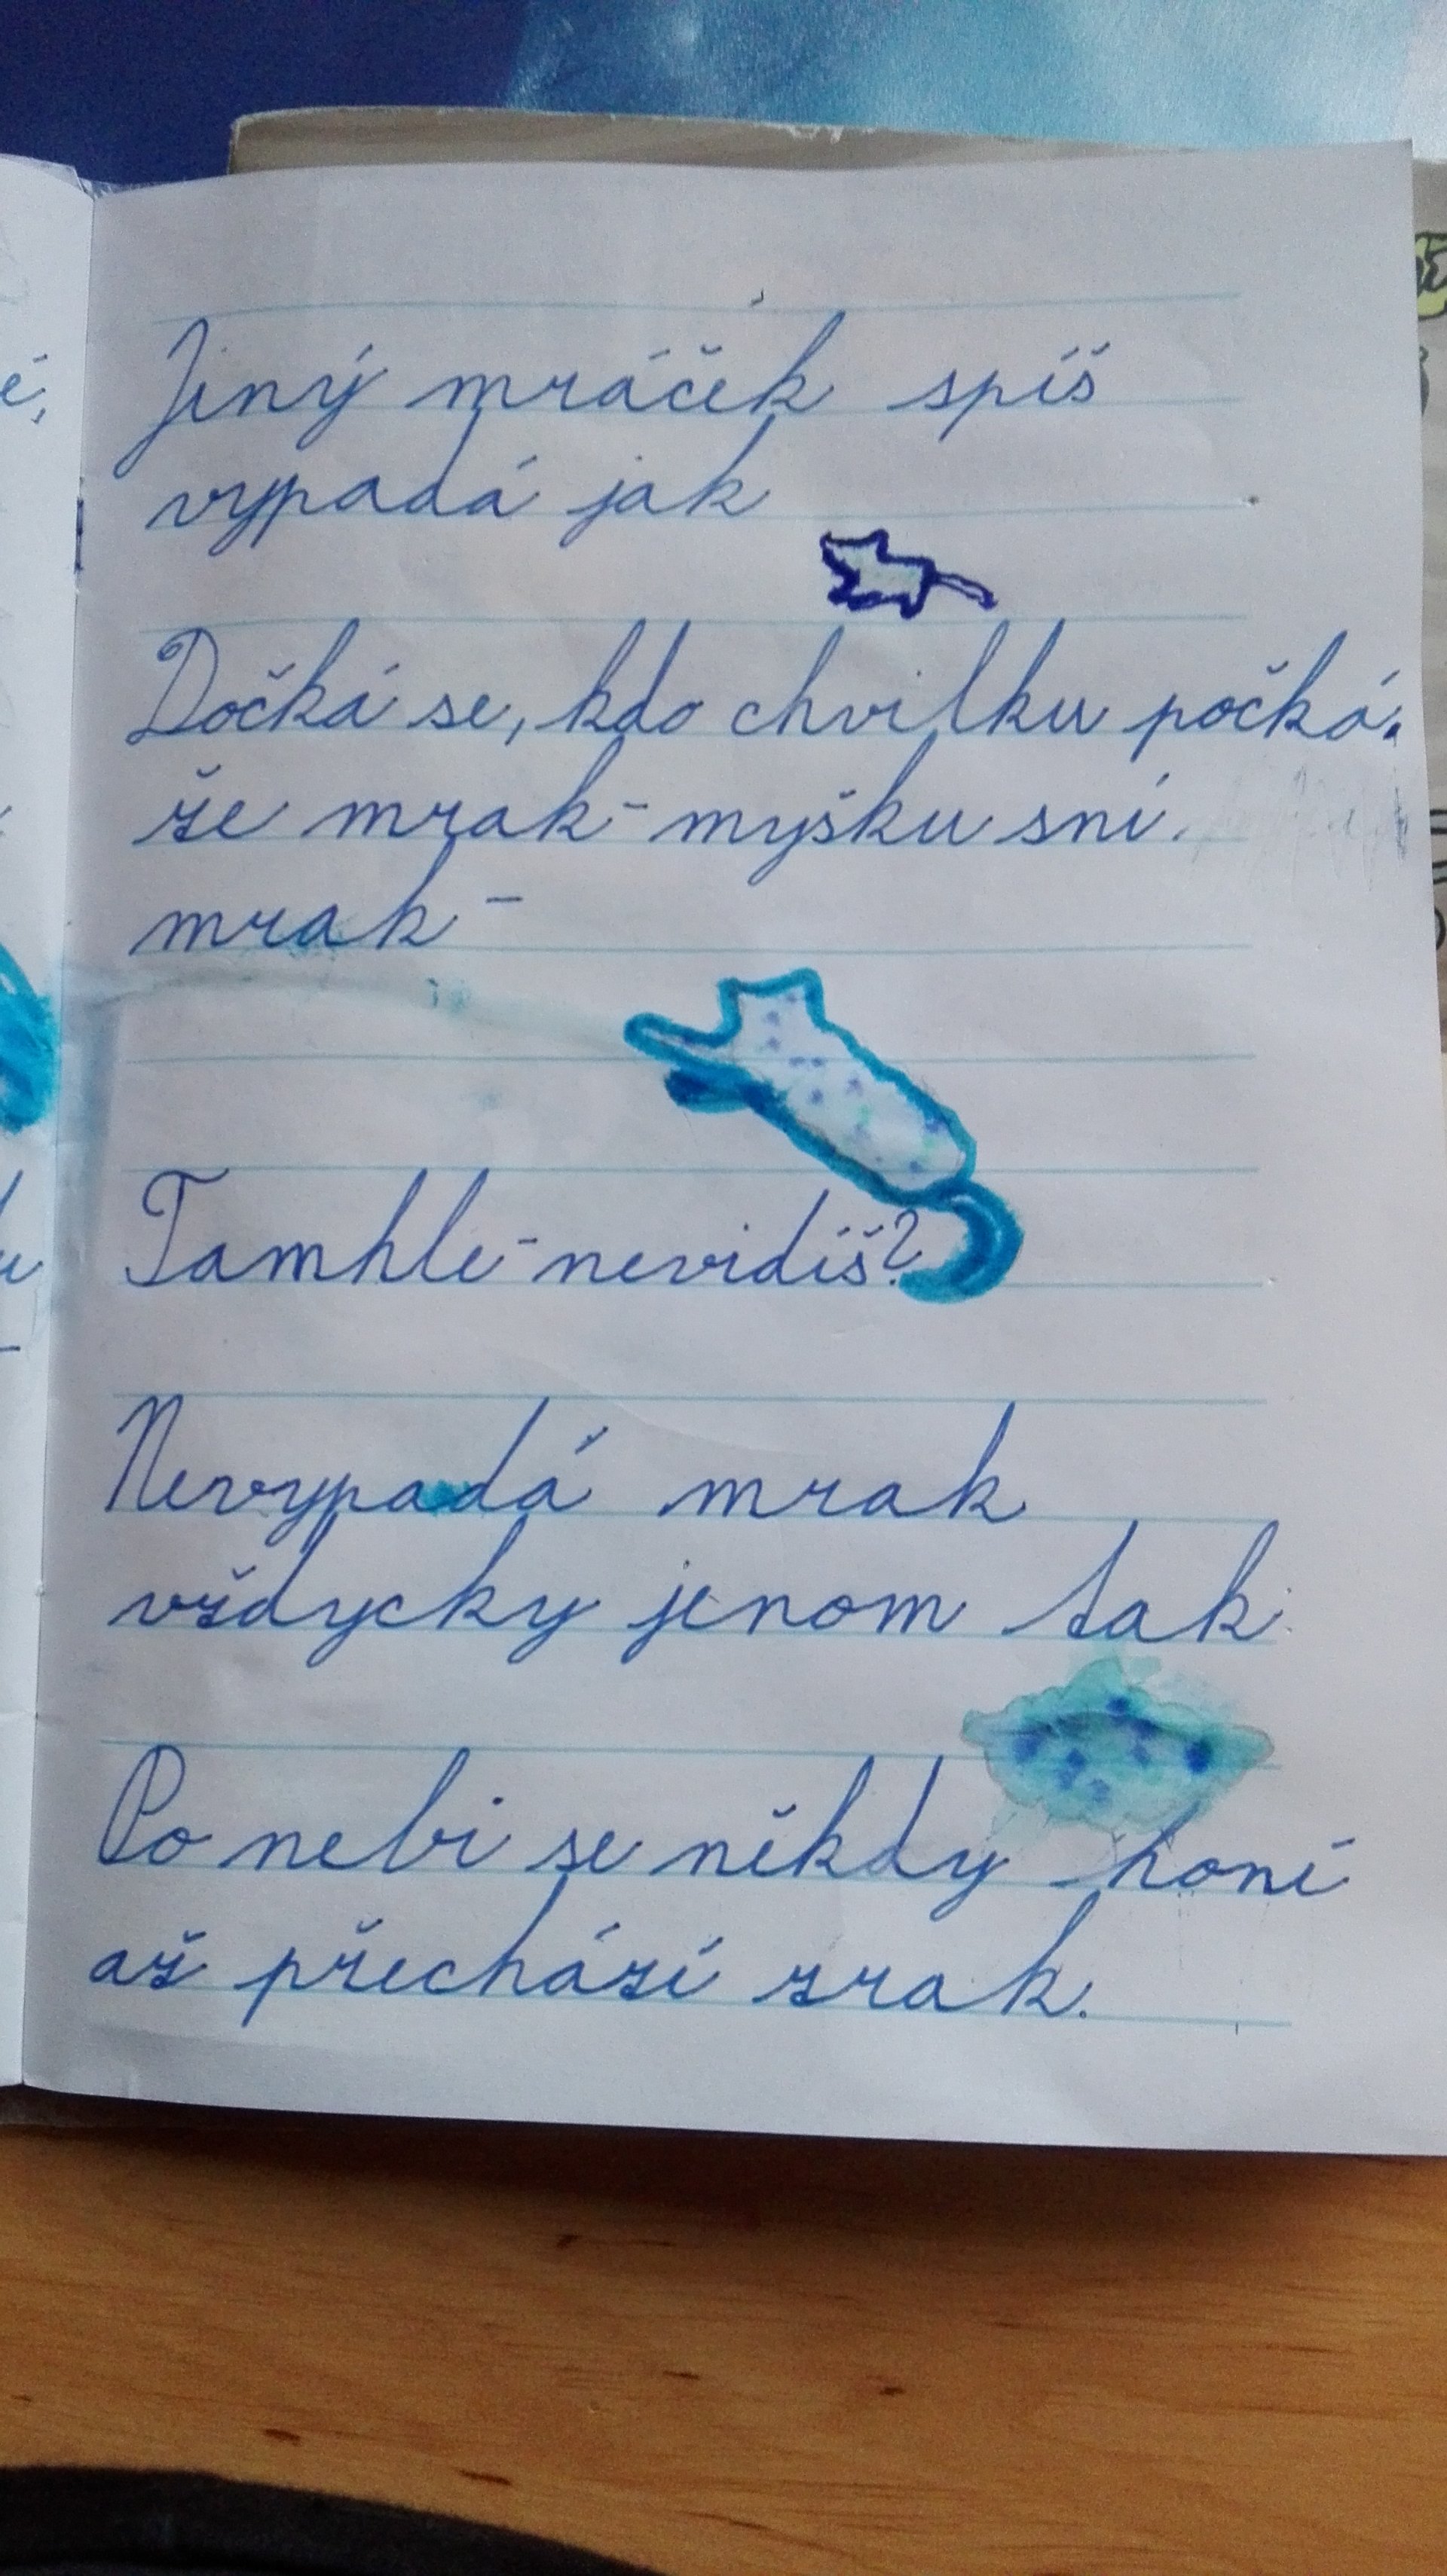 Jiný mráček spíš
vypadá jak
Dočká se, kdo chvilku počká.
že mrak-myšku sní.
mrak-
Tamhle-nevidíš?
Nevypadá mrak
vždycky jenom tak:
Po nebi se někdy honí
až přechází zrak.